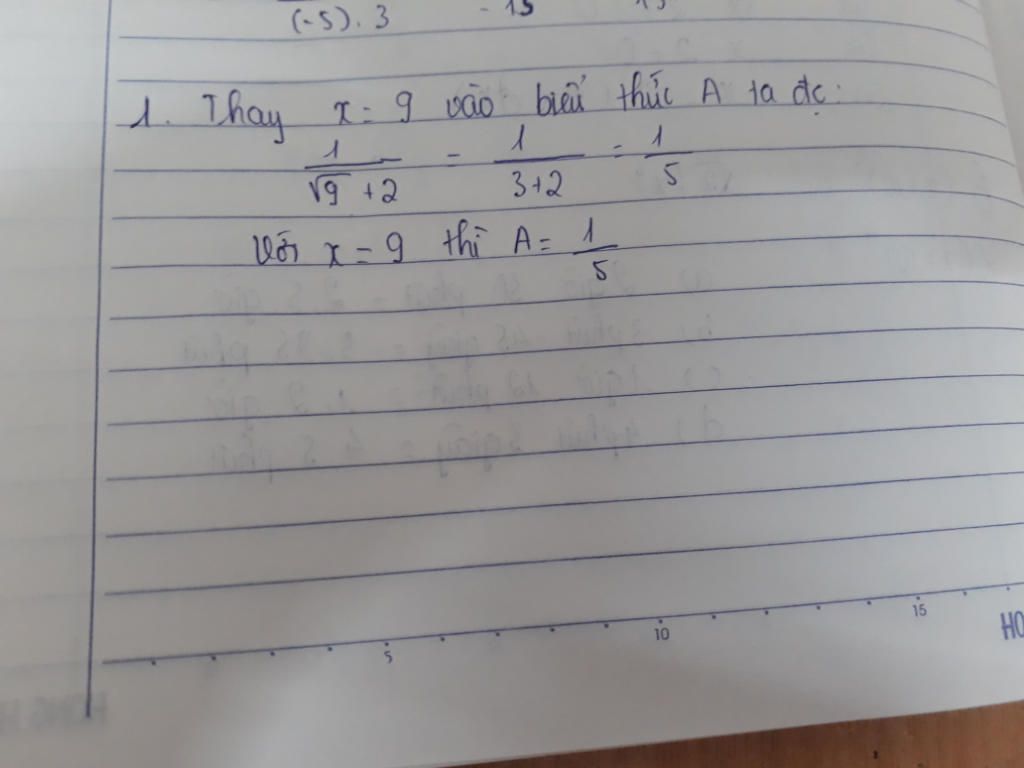 (-5).3 -15 15
1. Thay x = 9 vào biểu thức A ta đc:
1/(√9 + 2) = 1/(3+2) = 1/5
Với x = 9 thì A = 1/5
5 10 15
HO